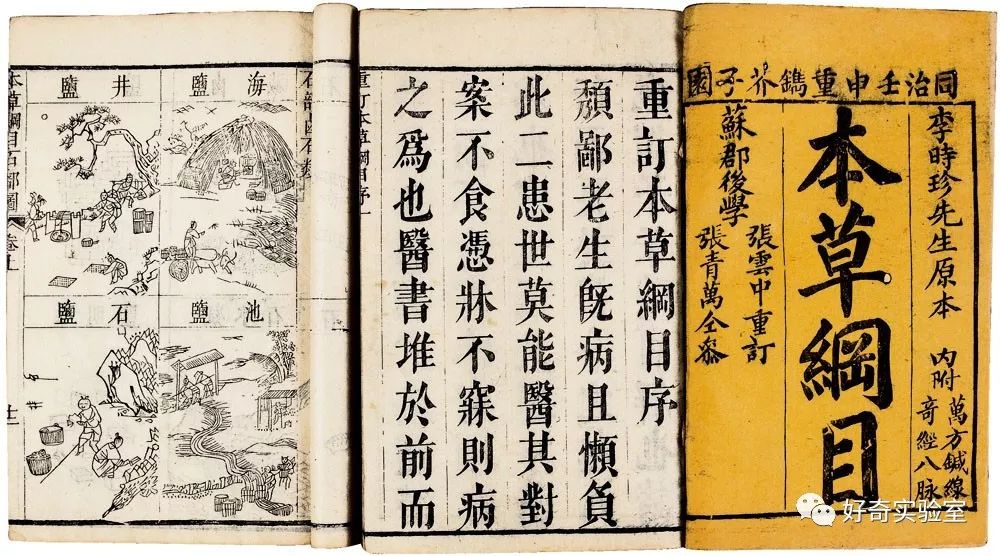 同治壬申重鐫芥子園
李時珍先生原本
内附
萬方鍼線
奇經八脉
本草綱目
蘇郡後學
張雲中重訂
張青萬仝參
重訂本草綱目序
頽鄙老生旣病且懶負
此二患世莫能醫其對
案不食憑牀不寐則病
之爲也醫書堆於前而
重訂本草綱目序
石部鹵石類
海鹽
井鹽
池鹽
石鹽
本草綱目石部圖
好奇实验室